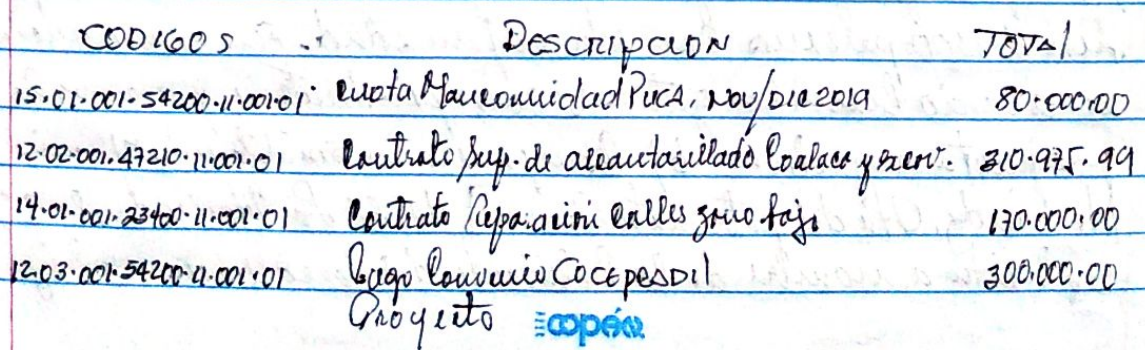 CODIGOS Descripcion TOTAL
15.01.001.54200.11.001.01 Cuota Mancomunidad PUCA, NOV/DIC 2019 80.000.00
12.02.001.47210.11.001.01 Contrato Sup. de alcantarillado Coalaca y 310.975.99
14.01.001.23400.11.001.01 Contrato Reparacion Calles zona baja 170.000.00
12.03.001.54200.11.001.01 Pago Convenio COCEPRADIL 300.000.00
Proyecto